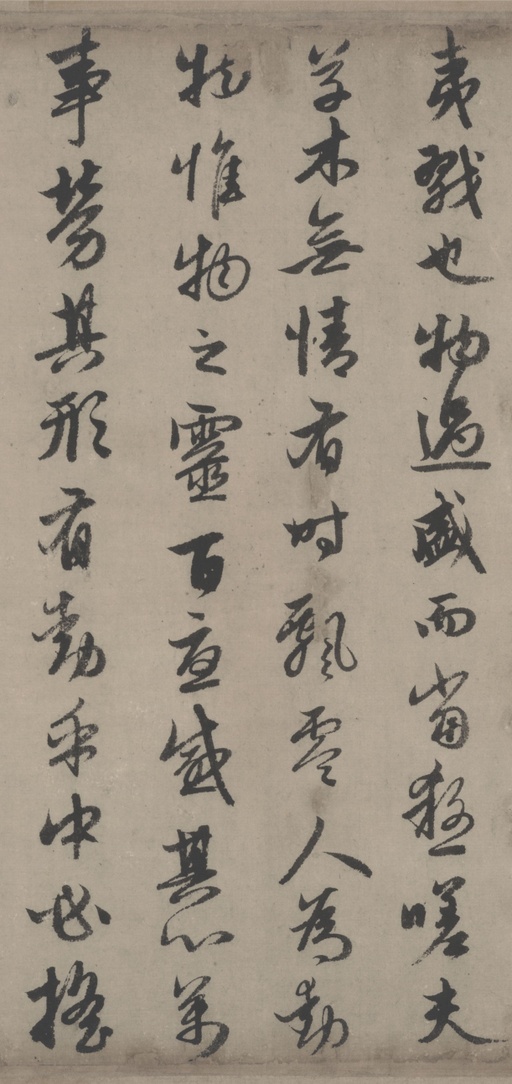 夷戮也物過盛而當殺嗟夫
草木無情有時飄零人為動
物惟物之靈百憂感其心萬
事勞其形有動乎中必搖